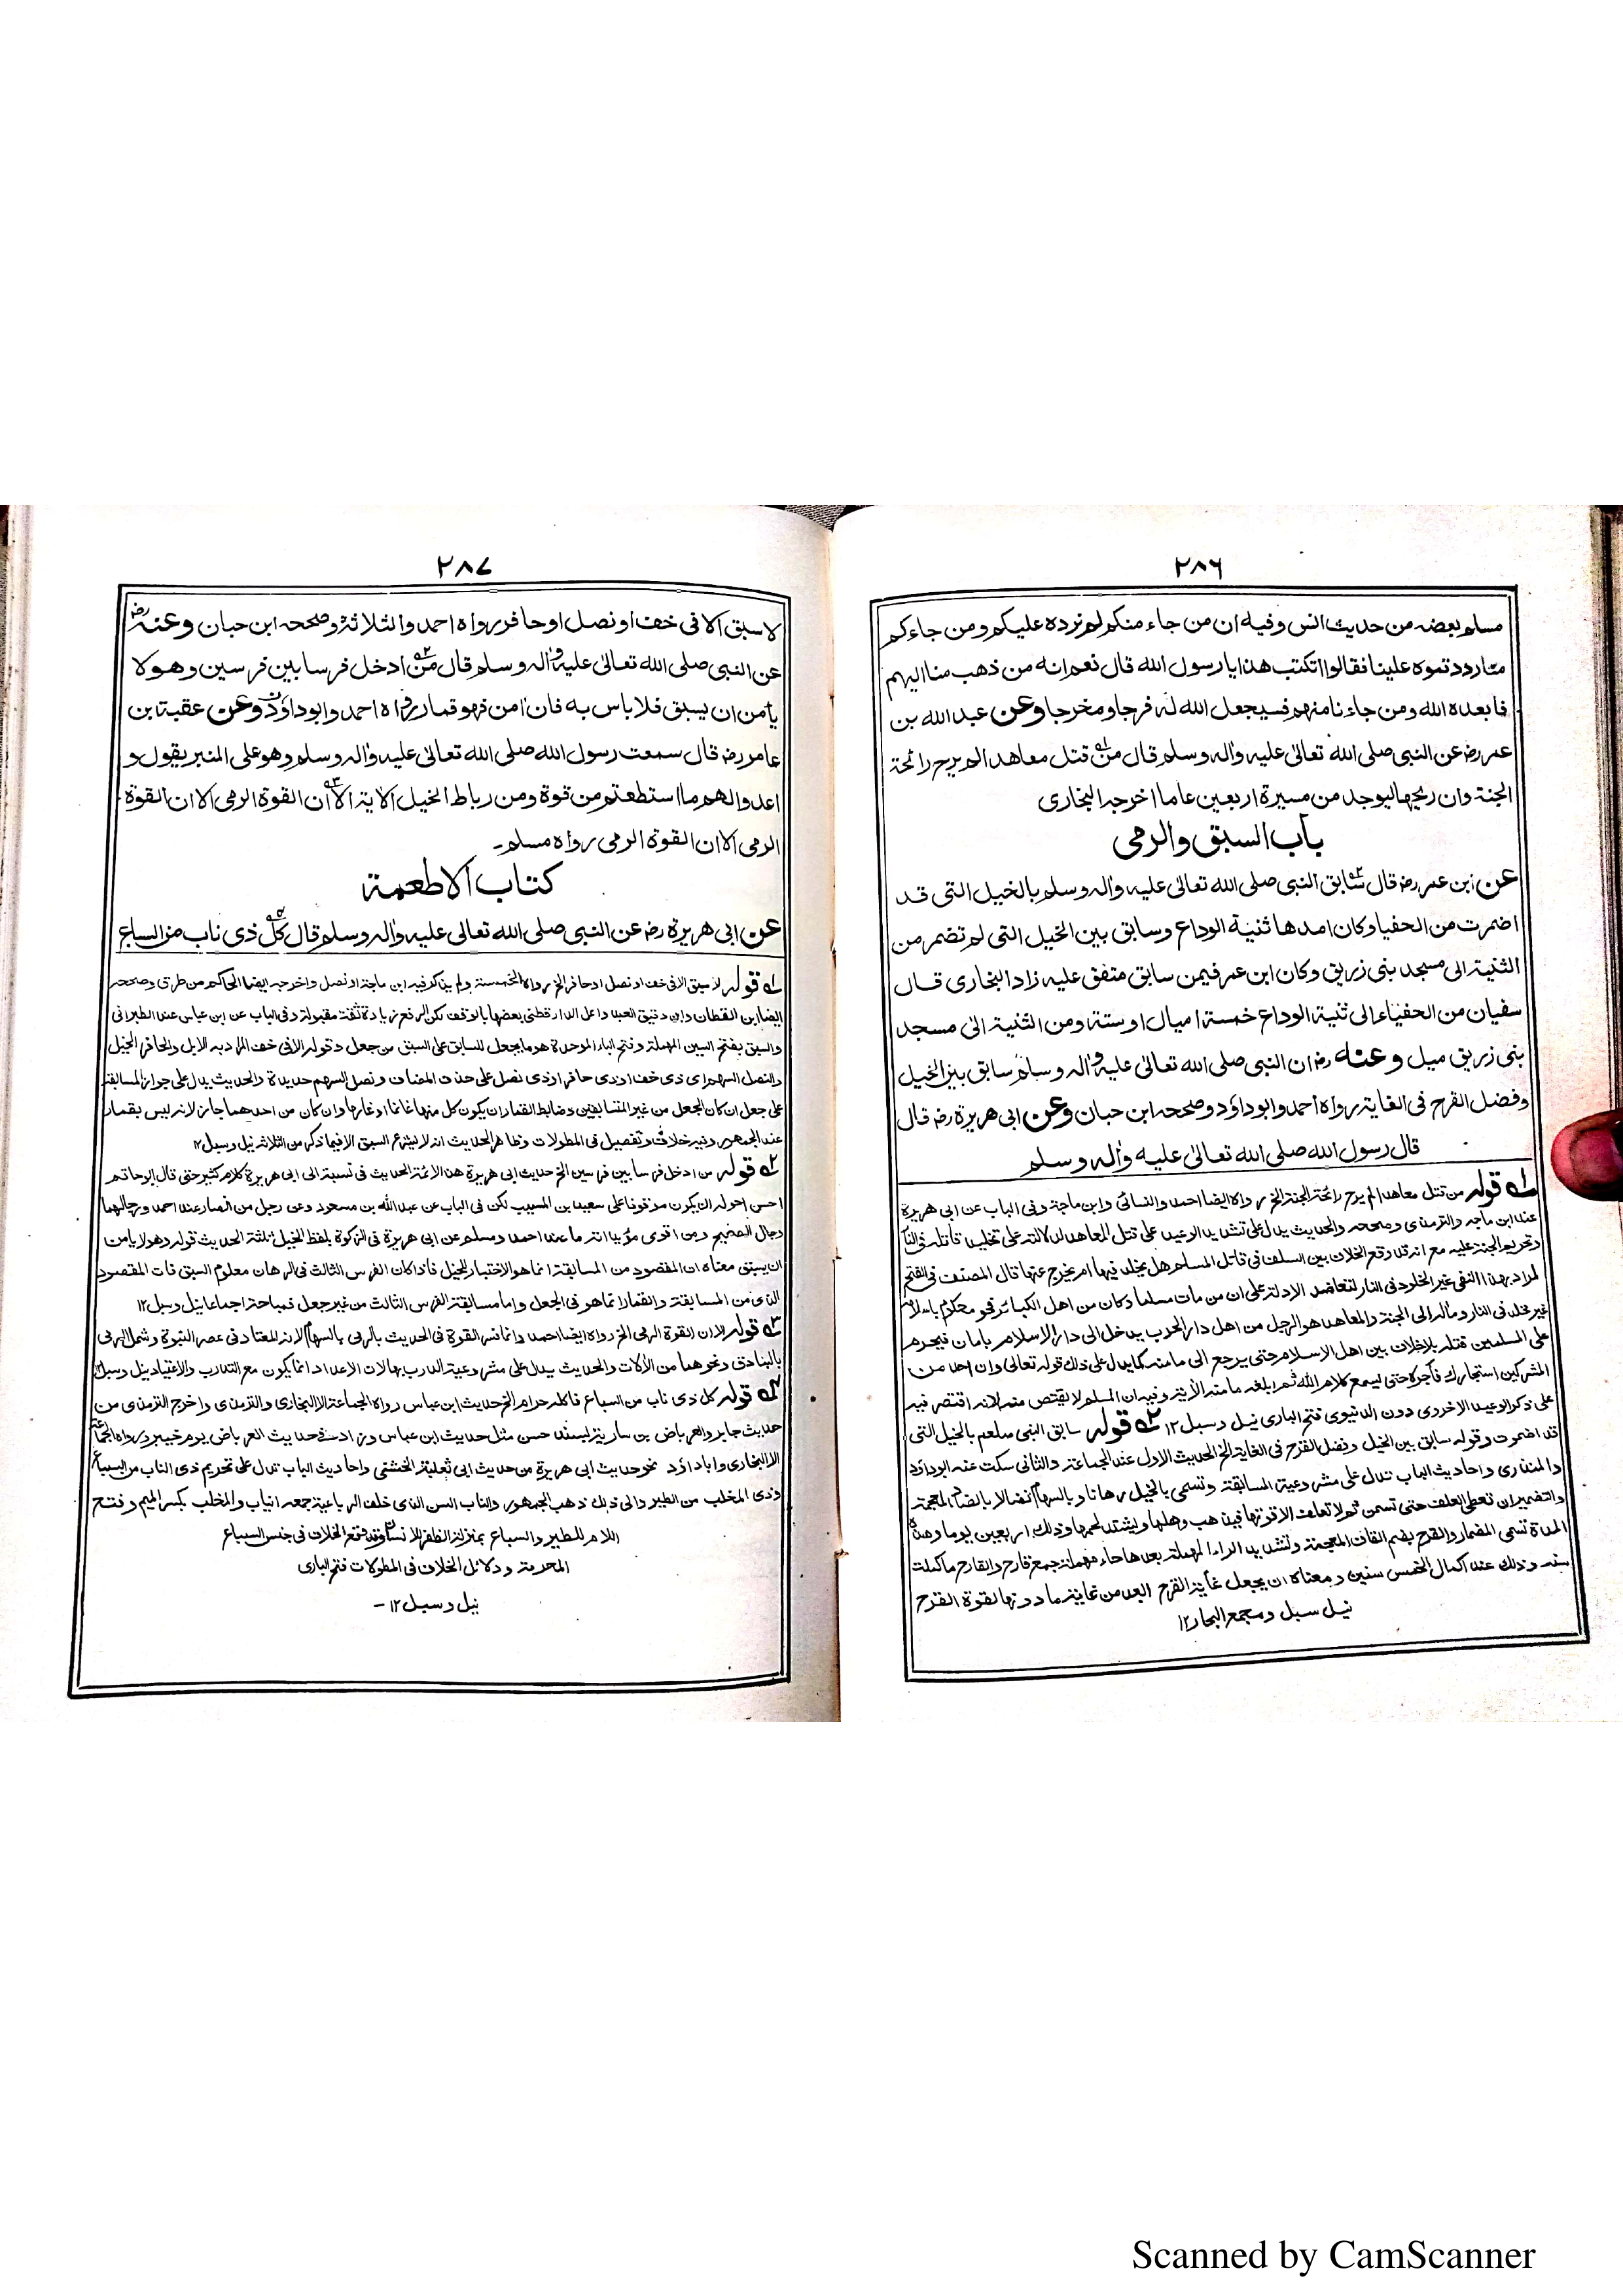 ٢٨٦
مسلم بعضه من حديث انس وفيه ان من جاء منكم لم نرده عليكم ومن جاءكم
منا رددتموه علينا فقالوا اتكتب هذا يا رسول الله قال نعم انه من ذهب منا اليهم
فابعده الله ومن جاءنا منهم فسيجعل الله له فرجا ومخرجا وعن عبد الله بن
عمر رضـ عن النبى صلى الله تعالى عليه واله وسلم قال من قتل معاهدا لم يرح رائحة
الجنة وان ريحها ليوجد من مسيرة اربعين عاما اخرجه البخارى
باب السبق والرمى
عن ابن عمر رضـ قال سابق النبى صلى الله تعالى عليه واله وسلم بالخيل التى قد
اضمرت من الحفيا وكان امدها ثنية الوداع وسابق بين الخيل التى لم تضمر من
الثنية الى مسجد بنى زريق وكان ابن عمر فيمن سابق متفق عليه زاد البخارى قال
سفيان من الحفياء الى ثنية الوداع خمسة اميال او ستة ومن الثنية الى مسجد
بنى زريق ميل وعنه رضـ ان النبى صلى الله تعالى عليه واله وسلم سابق بين الخيل
وفضل القرح فى الغاية رواه احمد وابو داؤد وصححه ابن حبان وعن ابى هريرة رضـ قال
قال رسول الله صلى الله تعالى عليه واله وسلم
١ قوله من قتل معاهدا لم يرح رائحة الجنة الخ رواه ايضا احمد والنسائى وابن ماجة وفى الباب عن ابى هريرة
عند ابن ماجه والترمذى وصححه والحديث يدل على تشديد الوعيد على قتل المعاهد لدلالته على تخليد قاتله فى النار
وتحريم الجنة عليه مع انه قد وقع الخلاف بين السلف فى قاتل المسلم هل يخلد فيها ام يخرج عنها قال المصنف فى الفتح
المراد بهذا النفى غير الخلود فى النار لتعاضد الادلة على ان من مات مسلما وكان من اهل الكبائر فهو محكوم باسلامه
غير مخلد فى النار ومآله الى الجنة والمعاهد هو الرجل من اهل دار الحرب يدخل الى دار الاسلام بامان فيحرم
على المسلمين قتله بلا خلاف بين اهل الاسلام حتى يرجع الى مامنه كما يدل على ذلك قوله تعالى وان احد من
المشركين استجارك فأجره حتى يسمع كلام الله ثم ابلغه مامنه الآية وفيه ان المسلم لا يقتص منه لانه اقتصر فيه
على ذكر الوعيد الاخروى دون الدنيوى فتح البارى نيل وسبل ١٢ ٢ قوله سابق النبى صلعم بالخيل التى
قد اضمرت وقوله سابق بين الخيل وفضل القرح فى الغاية الخ الحديث الاول عند الجماعة والثانى سكت عنه ابو داؤد
والمنذرى واحاديث الباب تدل على مشروعية المسابقة وتسمى بالخيل رهانا وبالسهام نضالا بالضاد المعجمة
والتضمير ان تعطى العلف حتى تسمن ثم لا تعلف الا قوتها فيذهب رهلها ويشتد لحمها وذلك اربعين يوما وهذه
المدة تسمى المضمار والقرح بضم القاف المعجمة وتشديد الراء المهملة بعدها حاء مهملة جمع قارح والقارح ما كملت
سنه وذلك عند اكمال الخمس سنين ومعناه ان يجعل غاية القرح ابعد من غاية ما دونها لقوة القرح
نيل سبل ومجمع البحار ١٢
٢٨٧
لا سبق الا فى خف او نصل او حافر رواه احمد والثلاثة وصححه ابن حبان وعنه رضـ
عن النبى صلى الله تعالى عليه واله وسلم قال من ادخل فرسا بين فرسين وهو لا
يأمن ان يسبق فلا باس به فان امن فهو قمار رواه احمد وابو داؤد وعن عقبة بن
عامر رضـ قال سمعت رسول الله صلى الله تعالى عليه واله وسلم وهو على المنبر يقول و
اعدوا لهم ما استطعتم من قوة ومن رباط الخيل الاية الا ان القوة الرمى الا ان القوة
الرمى الا ان القوة الرمى رواه مسلم۔
كتاب الاطعمة
عن ابى هريرة رضـ عن النبى صلى الله تعالى عليه واله وسلم قال كل ذى ناب من السباع
١ قوله لا سبق الا فى خف او نصل او حافر الخ رواه الخمسة ولم يذكر فيه ابن ماجة او نصل واخرجه ايضا الحاكم من طرق وصححه
ايضا ابن القطان وابن دقيق العيد واعل الدارقطنى بعضها بالوقف لكن الرفع زيادة ثقة مقبولة وفى الباب عن ابن عباس عند الطبرانى
والسبق بفتح السين المهملة وفتح الباء الموحدة هو ما يجعل للسابق على السبق من جعل وقوله الا فى خف المراد به الابل والحافر الخيل
والنصل السهم اى ذى خف او ذى حافر او ذى نصل على حذف المضاف ونصل السهم حديدة والحديث يدل على جواز المسابقة
على جعل ان كان الجعل من غير المتسابقين وضابط القمار ان يكون كل منها غانما او غارما وان كان من احدهما جاز لانه ليس بقمار
عند الجمهور وفيه خلاف وتفصيل فى المطولات وظاهر الحديث انه لا يشرع السبق الا فيما ذكر من الثلاثه نيل وسبل ١٢
٢ قوله من ادخل فرسا بين فرسين الخ حديث ابى هريرة هذا الائمة الحديث فى نسبة الى ابى هريرة كلام كثير حتى قال ابو حاتم
احسن احواله ان يكون موقوفا على سعيد بن المسيب لكن فى الباب عن عبد الله بن مسعود وعن رجل من انصار عند احمد ورجالهما
رجال الصحيح ومن اقوى مؤيداته ما عند احمد ومسلم عن ابى هريرة فى الزكوة بلفظ الخيل ثلثة الحديث قوله وهو لا يامن
ان يسبق معناه ان المقصود من المسابقة انما هو الاختبار للخيل فاذا كان الفرس الثالث فى الرهان معلوم السبق فات المقصود
الذى من المسابقة والقمار انما هو فى الجعل واما مسابقة الفرس الثالث من غير جعل فمباحة اجماعا نيل وسبل ١٢
٣ قوله الا ان القوة الرمى الخ رواه ايضا احمد وانما فسر القوة فى الحديث بالرمى بالسهام لانه المعتاد فى عصر النبوة وشمل الرمى
بالبنادق ونحوهما من الآلات والحديث يدل على مشروعية التدرب بهالان الاعداد انما يكون مع التدارب والاعتياد نيل وسبل ١٢
٤ قوله كل ذى ناب من السباع فاكله حرام الخ حديث ابن عباس رواه الجماعة الا البخارى والترمذى واخرج الترمذى من
حديث جابر والعرباض بن سارية بسند حسن مثل حديث ابن عباس وزاد فى حديث العرباض يوم خيبر ورواه الجماعة
الا البخارى وابا داؤد نحو حديث ابى هريرة من حديث ابى ثعلبة الخشنى واحاديث الباب تدل على تحريم ذى الناب من السباع
وذى المخلب من الطير والى ذلك ذهب الجمهور والناب السن الذى خلف الرباعية جمعه انياب والمخلب بكسر الميم وفتح
اللام للطير والسباع بمنزلة الظفر للانسان وقد وقع الخلاف فى جنس السباع
المحرمة ودلائل الخلاف فى المطولات فتح البارى
نيل وسبل ١٢۔
Scanned by CamScanner